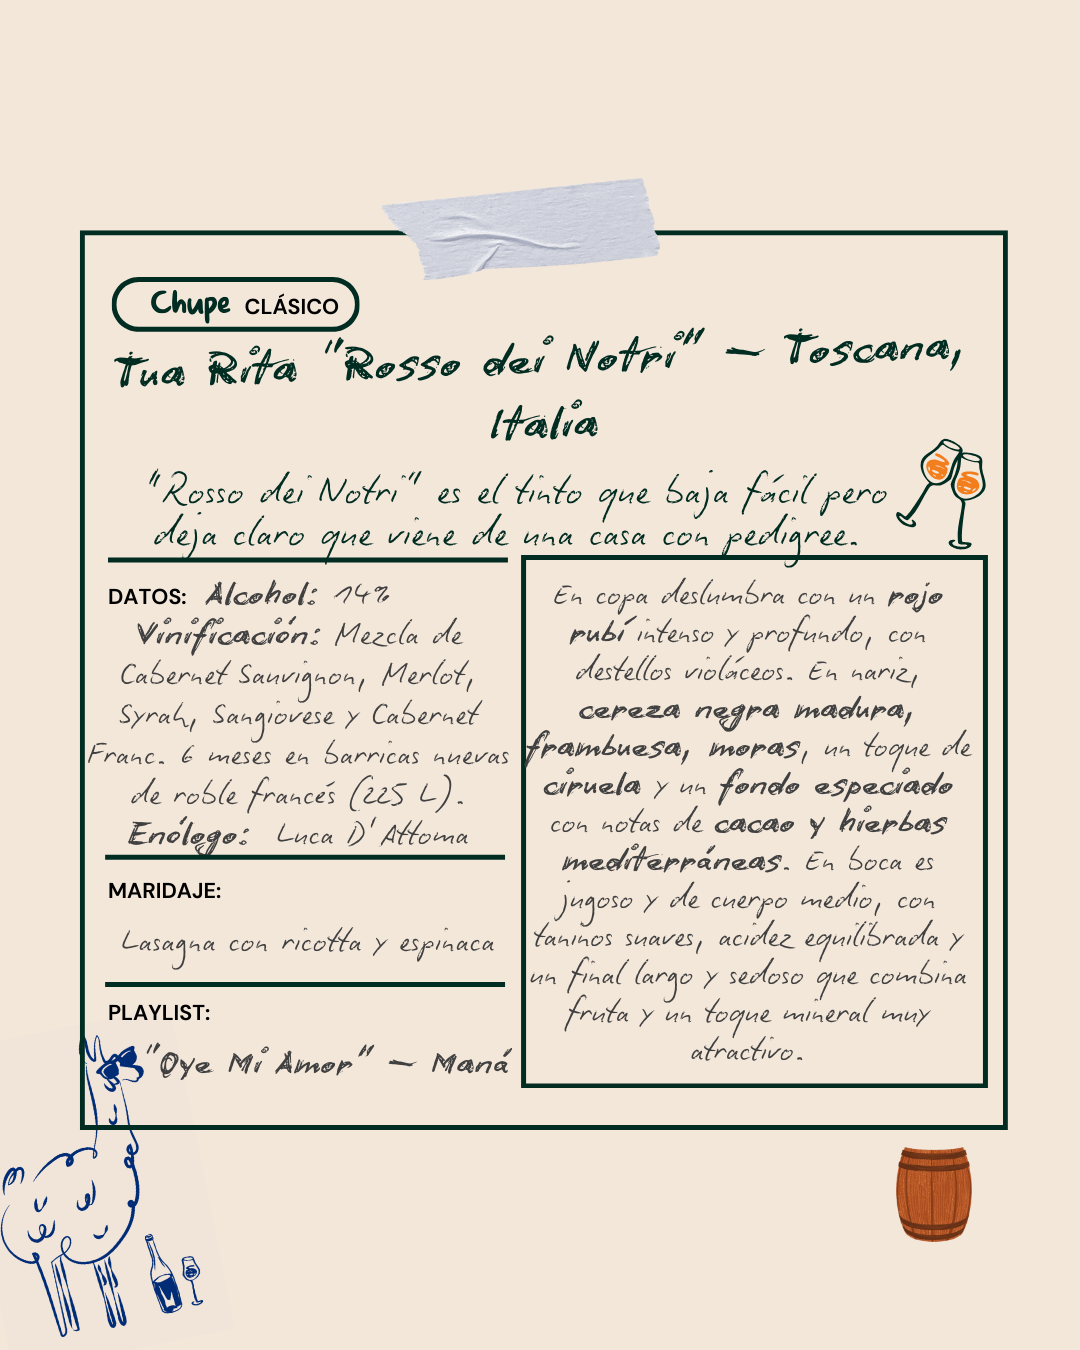 Chupe CLÁSICO
Tua Rita "Rosso dei Notri" – Toscana,
Italia
"Rosso dei Notri" es el tinto que baja fácil pero
deja claro que viene de una casa con pedigree.
DATOS: Alcohol: 14%
Vinificación: Mezcla de
Cabernet Sauvignon, Merlot,
Syrah, Sangiovese y Cabernet
Franc. 6 meses en barricas nuevas
de roble francés (225 L).
Enólogo: Luca D'Attoma
MARIDAJE:
Lasagna con ricotta y espinaca
PLAYLIST:
"Oye Mi Amor" – Maná
En copa deslumbra con un rojo
rubí intenso y profundo, con
destellos violáceos. En nariz,
cereza negra madura,
frambuesa, moras, un toque de
ciruela y un fondo especiado
con notas de cacao y hierbas
mediterráneas. En boca es
jugoso y de cuerpo medio, con
taninos suaves, acidez equilibrada y
un final largo y sedoso que combina
fruta y un toque mineral muy
atractivo.